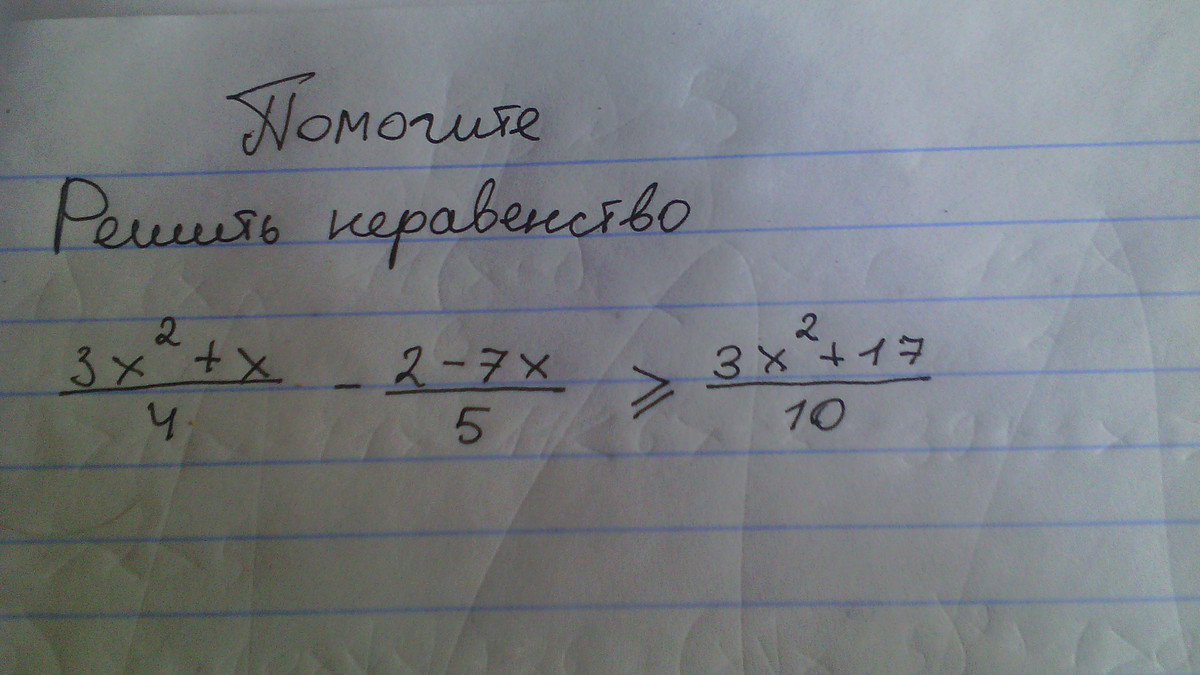 Помогите
Решить неравенство
(3x² + x)/4 - (2 - 7x)/5 ⩾ (3x² + 17)/10